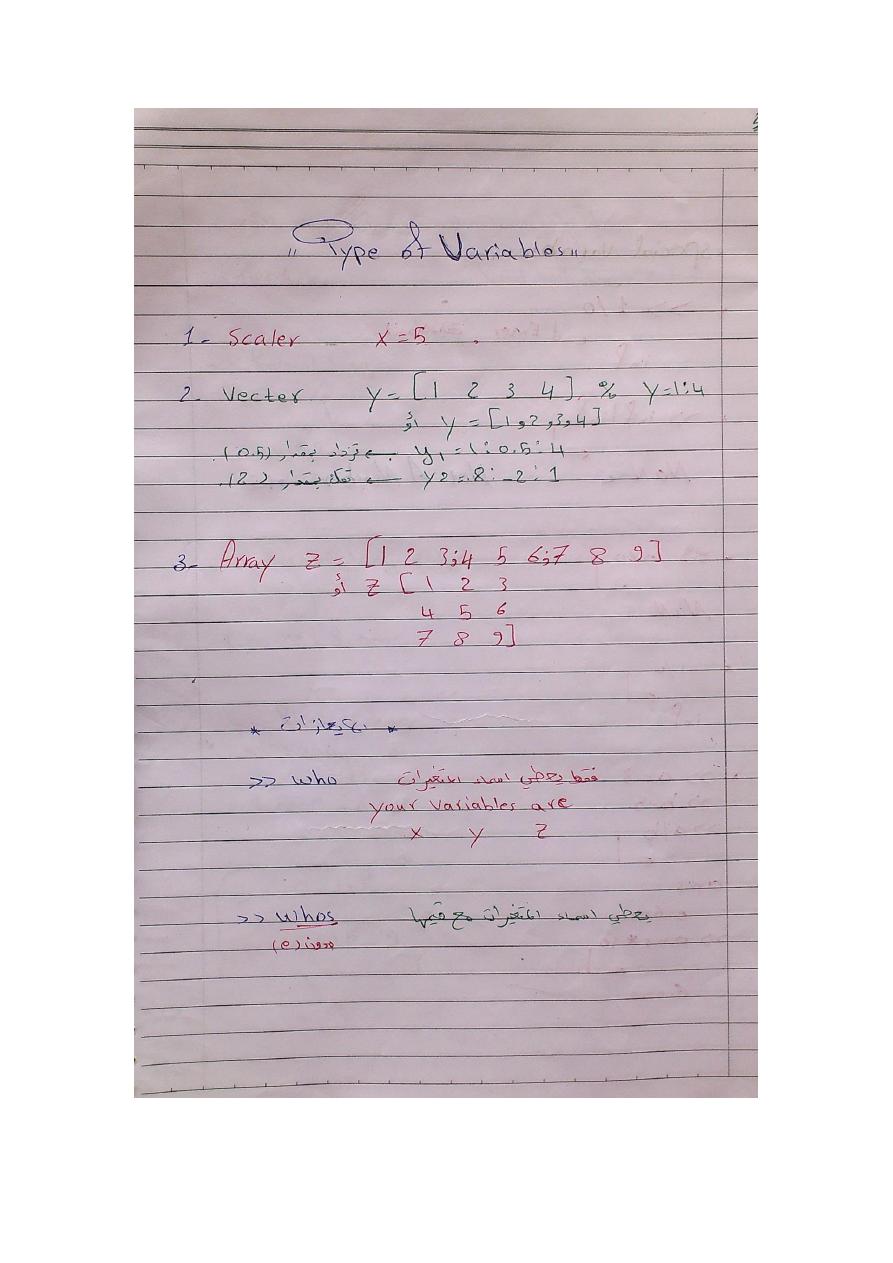 "Type of Variables"
1- Scaler x = 5 .
2- Vecter y = [1 2 3 4] % y=1:4
أو y = [1,2,3,4]
y1 = 1:0.5:4 ← تزداد بمقدار (0.5).
y2 = 8:-2:1 ← تقل بمقدار (2).
3- Array z = [1 2 3;4 5 6;7 8 9]
أو z [1 2 3
4 5 6
7 8 9]
* *
>> who فقط يعطي اسماء المتغيرات
your variables are
x y z
>> whos يعطي اسماء المتغيرات مع قيمها
بدون (e)